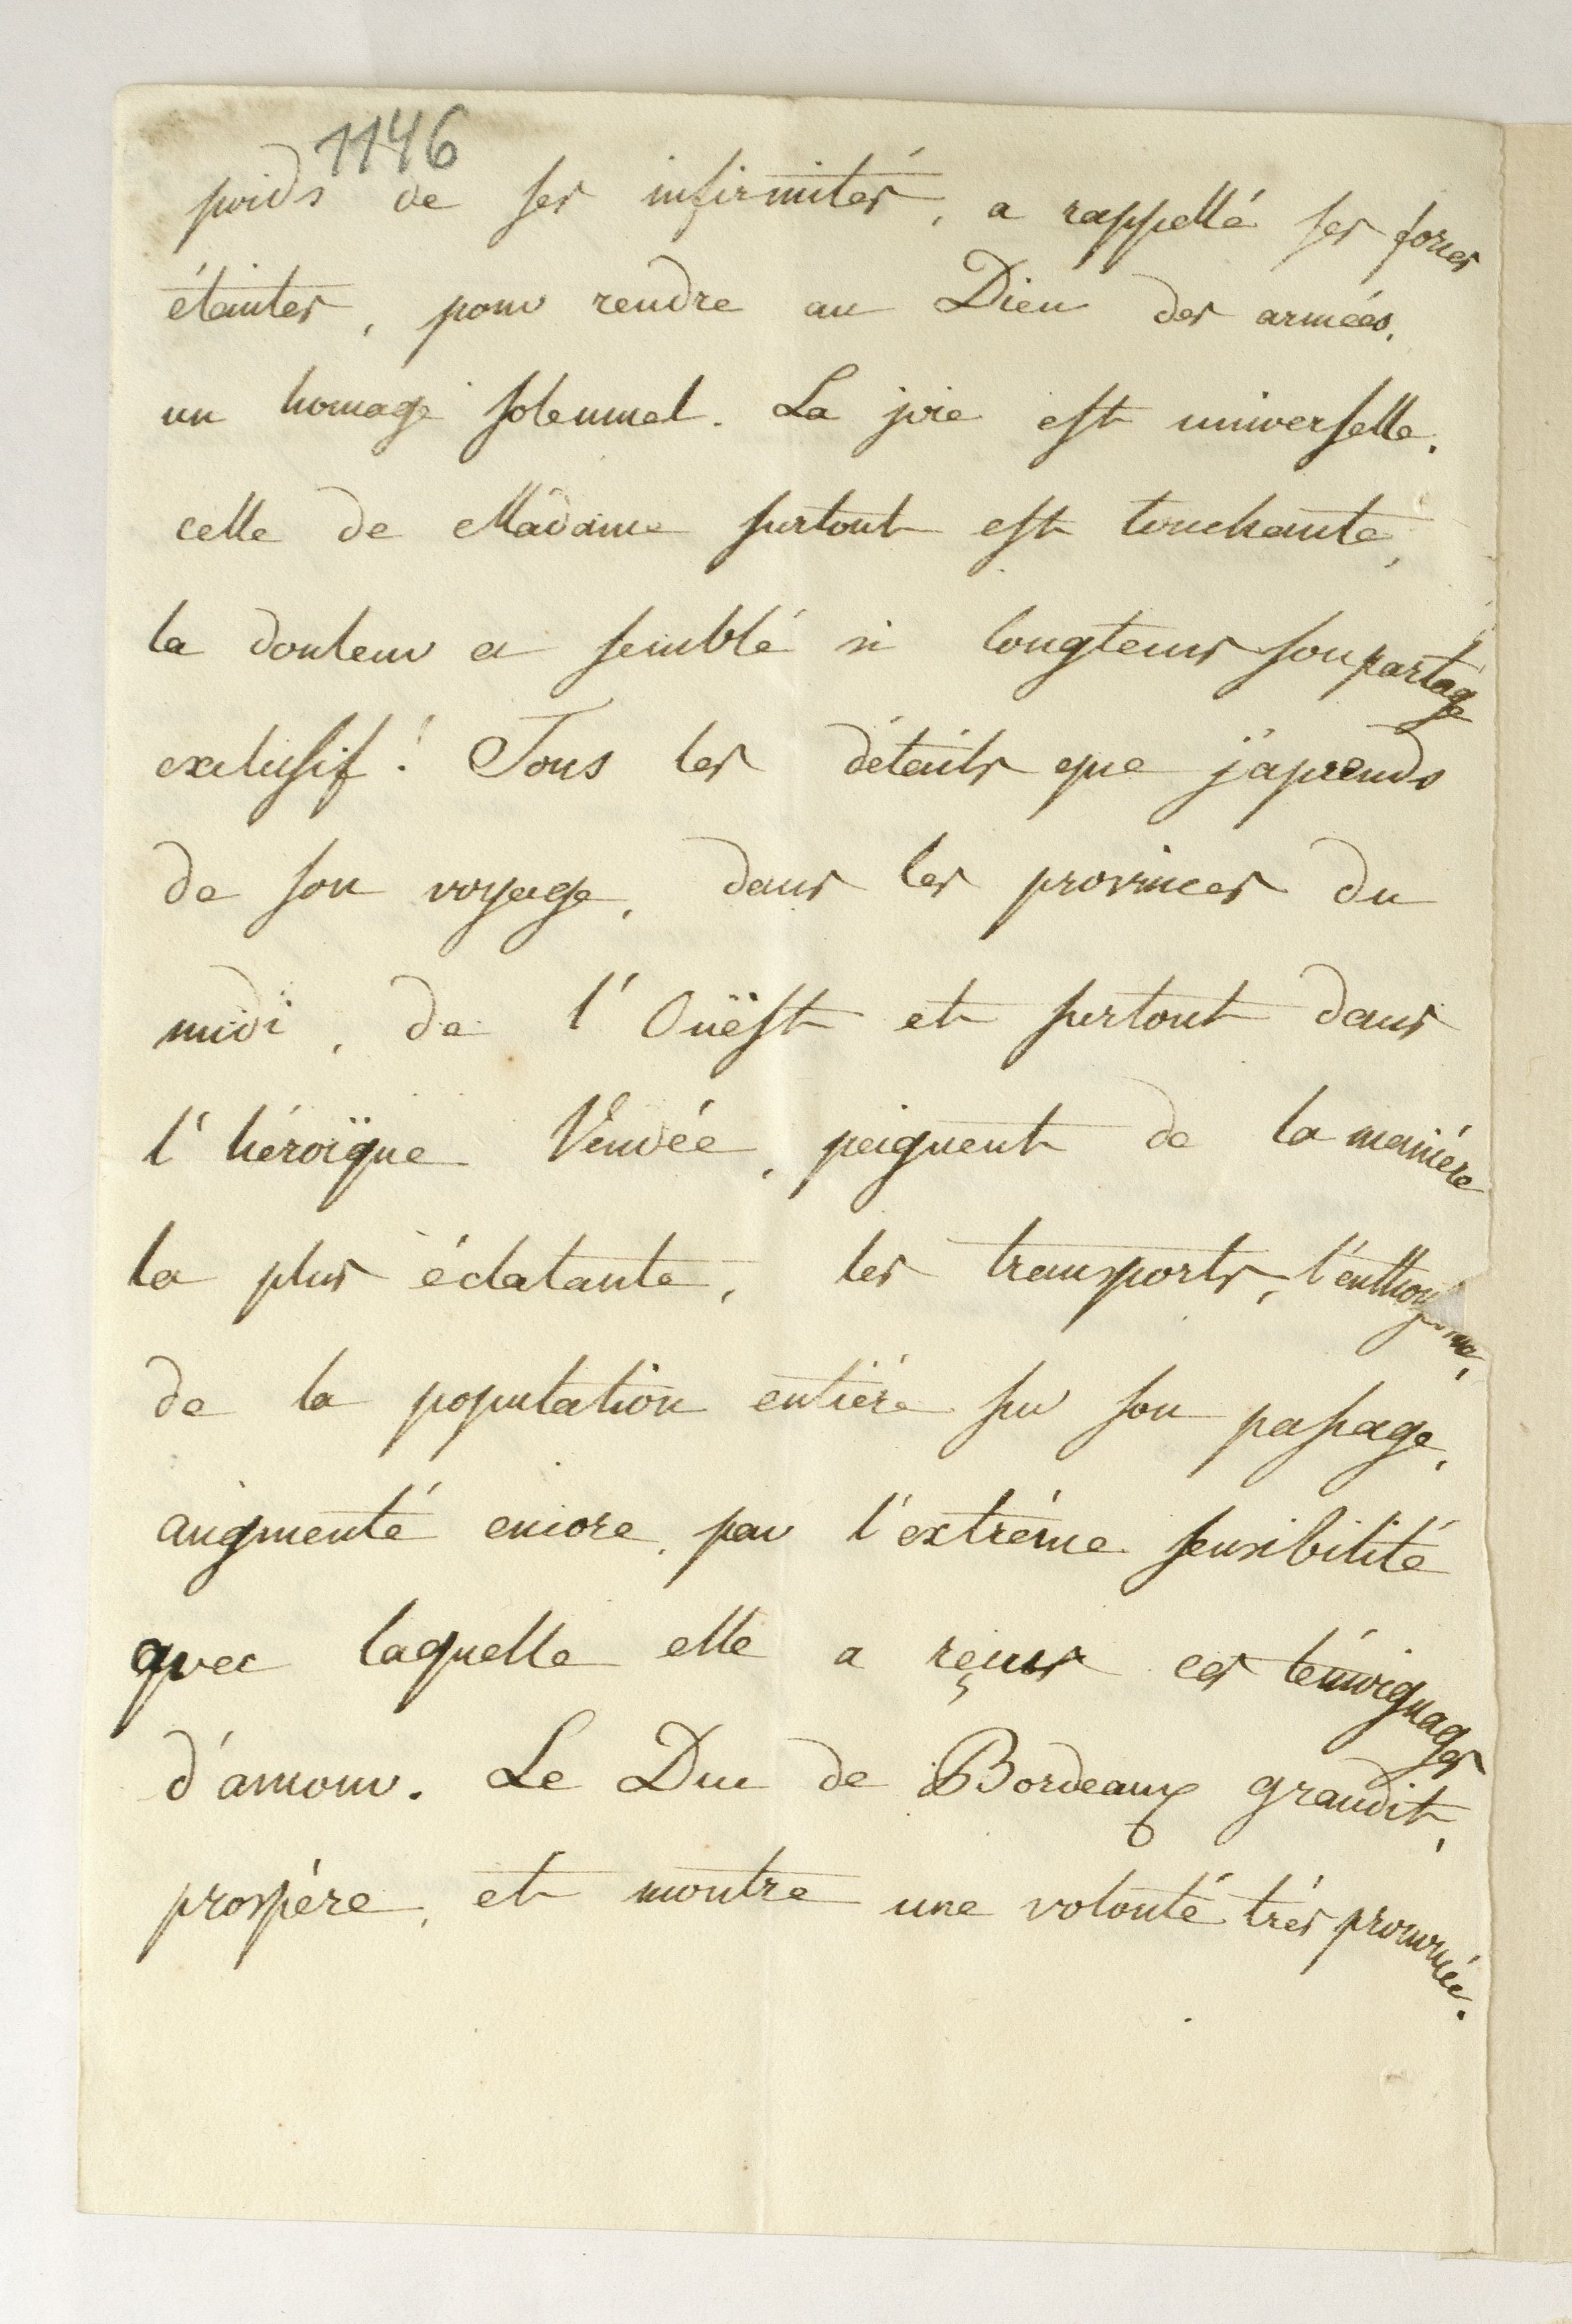 1146
poids de ses infirmités, a rappellé ses forces
étaintes, pour rendre au Dieu des armées,
un homage solemnel. La joie est universelle.
celle de Madame surtout est touchante,
la douleur a semblé si longtems son partage
exclusif! Tous les détails que j'aprends
de son voyage, dans les provinces du
midi, de l'Ouëst et surtout dans
l'héroïque Vendée, peignent de la maniére
la plus éclatante, les transports,
de la population entiére sur son passage,
augmenté encore, par l'extrème sensibilité
avec laquelle elle a reçus ces témoignages
d'amour. Le Duc de Bordeaux grandit,
prospère, et montre une volonté très prononcée.